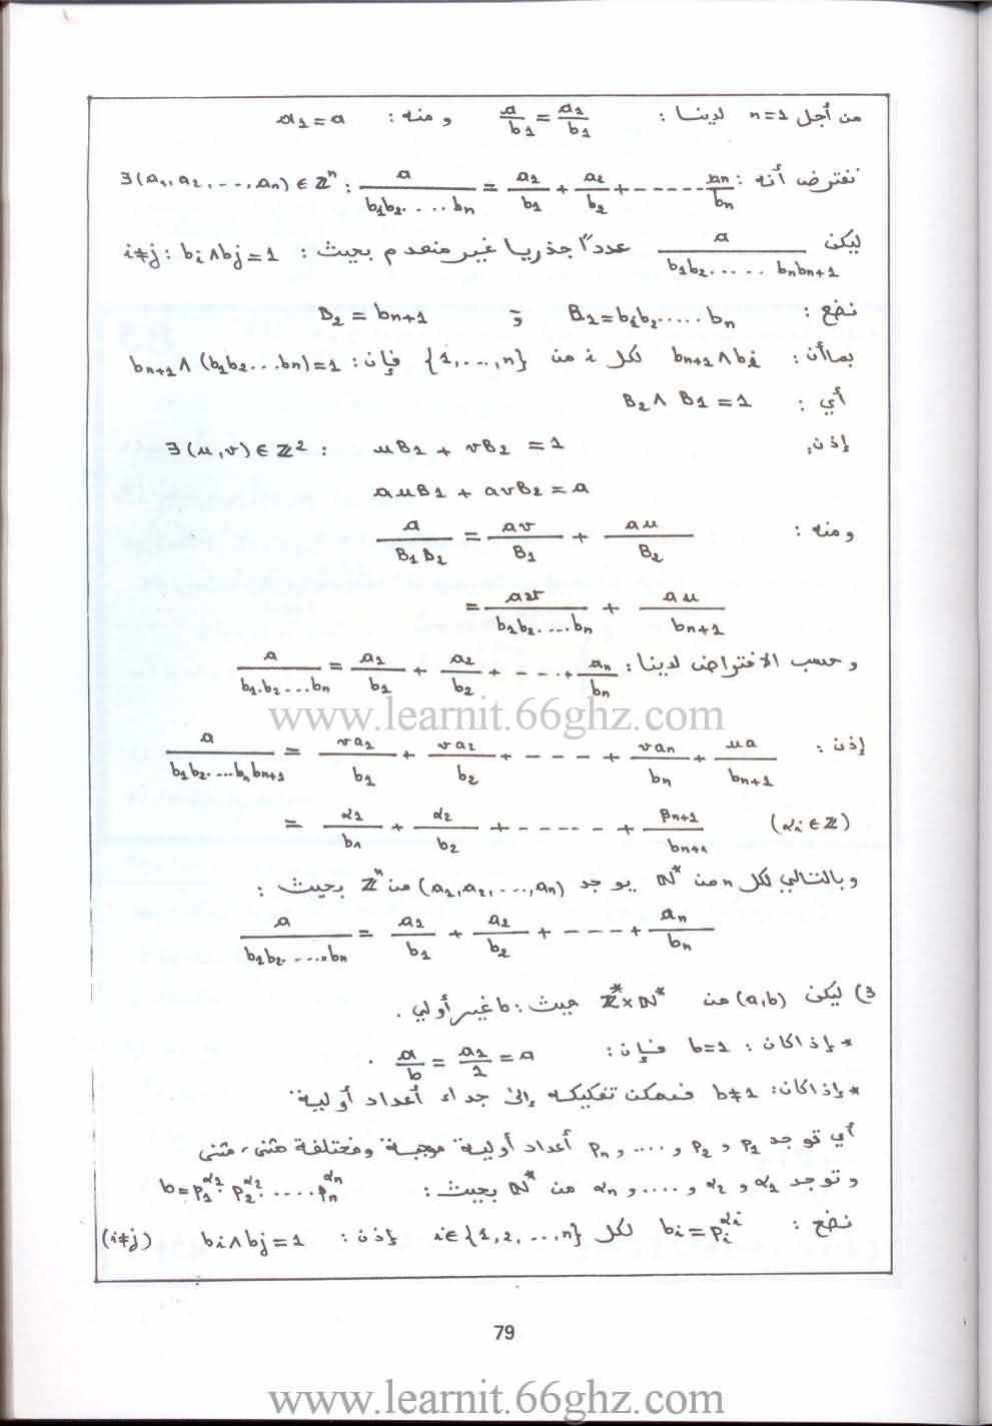 من أجل n=1 لدينا : a/b1 = a1/b1 ومنه : a1=a
نفترض أنه : ∃(a1, a2, ..., an) ∈ ℤⁿ : a/(b1b2....bn) = a1/b1 + a2/b2 + ------ an/bn
ليكن a/(b1b2..... bnbn+1) عددا جذريا غير منعدم بحيث : i≠j : bi∧bj=1
نضع : B1=b1b2.....bn و B2=bn+1
بما أن : bn+1∧bi لكل i من {1,...,n} فإن : bn+1∧(b1b2...bn)=1
أي : B2∧B1=1
إذن, ∃(u,v)∈ℤ² : uB1 + vB2 = 1
auB1 + avB2 = a
ومنه : a/(B1B2) = av/B1 + au/B2
= av/(b1b2....bn) + au/bn+1
وحسب الافتراض لدينا : a/(b1.b2...bn) = a1/b1 + a2/b2 + - - - .+ an/bn
www.learnit.66ghz.com
إذن : a/(b1b2....bnbn+1) = va1/b1 + va2/b2 + - - - + van/bn + ua/bn+1
= α1/b1 + α2/b2 + - - - - - + βn+1/bn+1 (αi∈ℤ)
وبالتالي لكل n من ℕ* يوجد (a1,a2,...,an) من ℤⁿ بحيث :
a/(b1b2.....bn) = a1/b1 + a2/b2 + - - - - + an/bn
3) ليكن (a,b) من ℤ*×ℕ* حيث : b غير أولي .
* إذا كان : b=1 فإن : a/b = a1/1 = a .
* إذا كان: b≠1 فيمكن تفكيكه إلى جداء أعداد أولية
أي توجد p1 و p2 و .... و pn أعداد أولية موجبة ومختلفة مثنى، مثنى
وتوجد α1 و α2 و .... و αn من ℕ* بحيث : b=p1^α1.p2^α2.....pn^αn
نضع : bi=pi^αi لكل i∈{1,2,...,n} إذن : bi∧bj=1 (i≠j)
79
www.learnit.66ghz.com